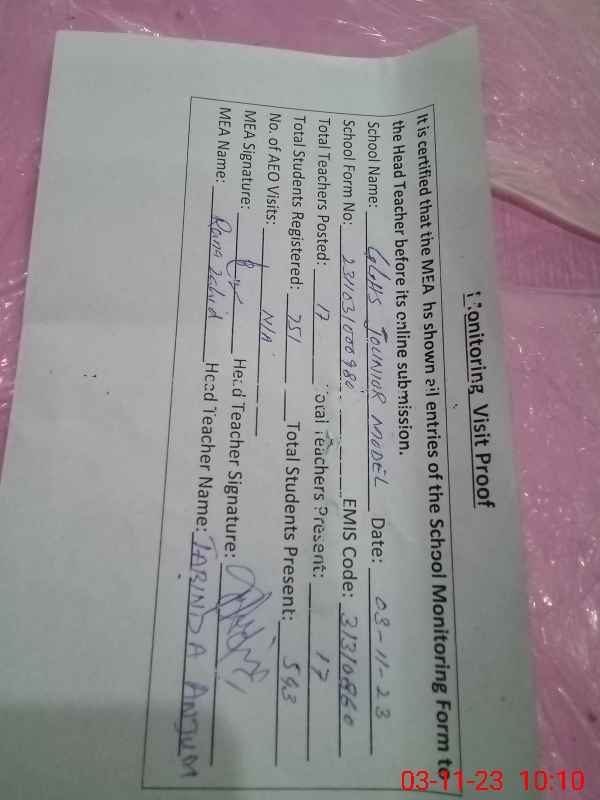 Monitoring Visit Proof
It is certified that the MEA hs shown all entries of the School Monitoring Form to
the Head Teacher before its online submission.
School Name: GGHS JOUNIOR MODEL Date: 03-11-23
School Form No: EMIS Code:
Total Teachers Posted: 17 Total Teachers Present: 17
Total Students Registered: 751 Total Students Present: 593
No. of AEO Visits: N/A
MEA Signature: Head Teacher Signature:
MEA Name: Rana Zahid Head Teacher Name: TABINDA ANJUM
03-11-23 10:10